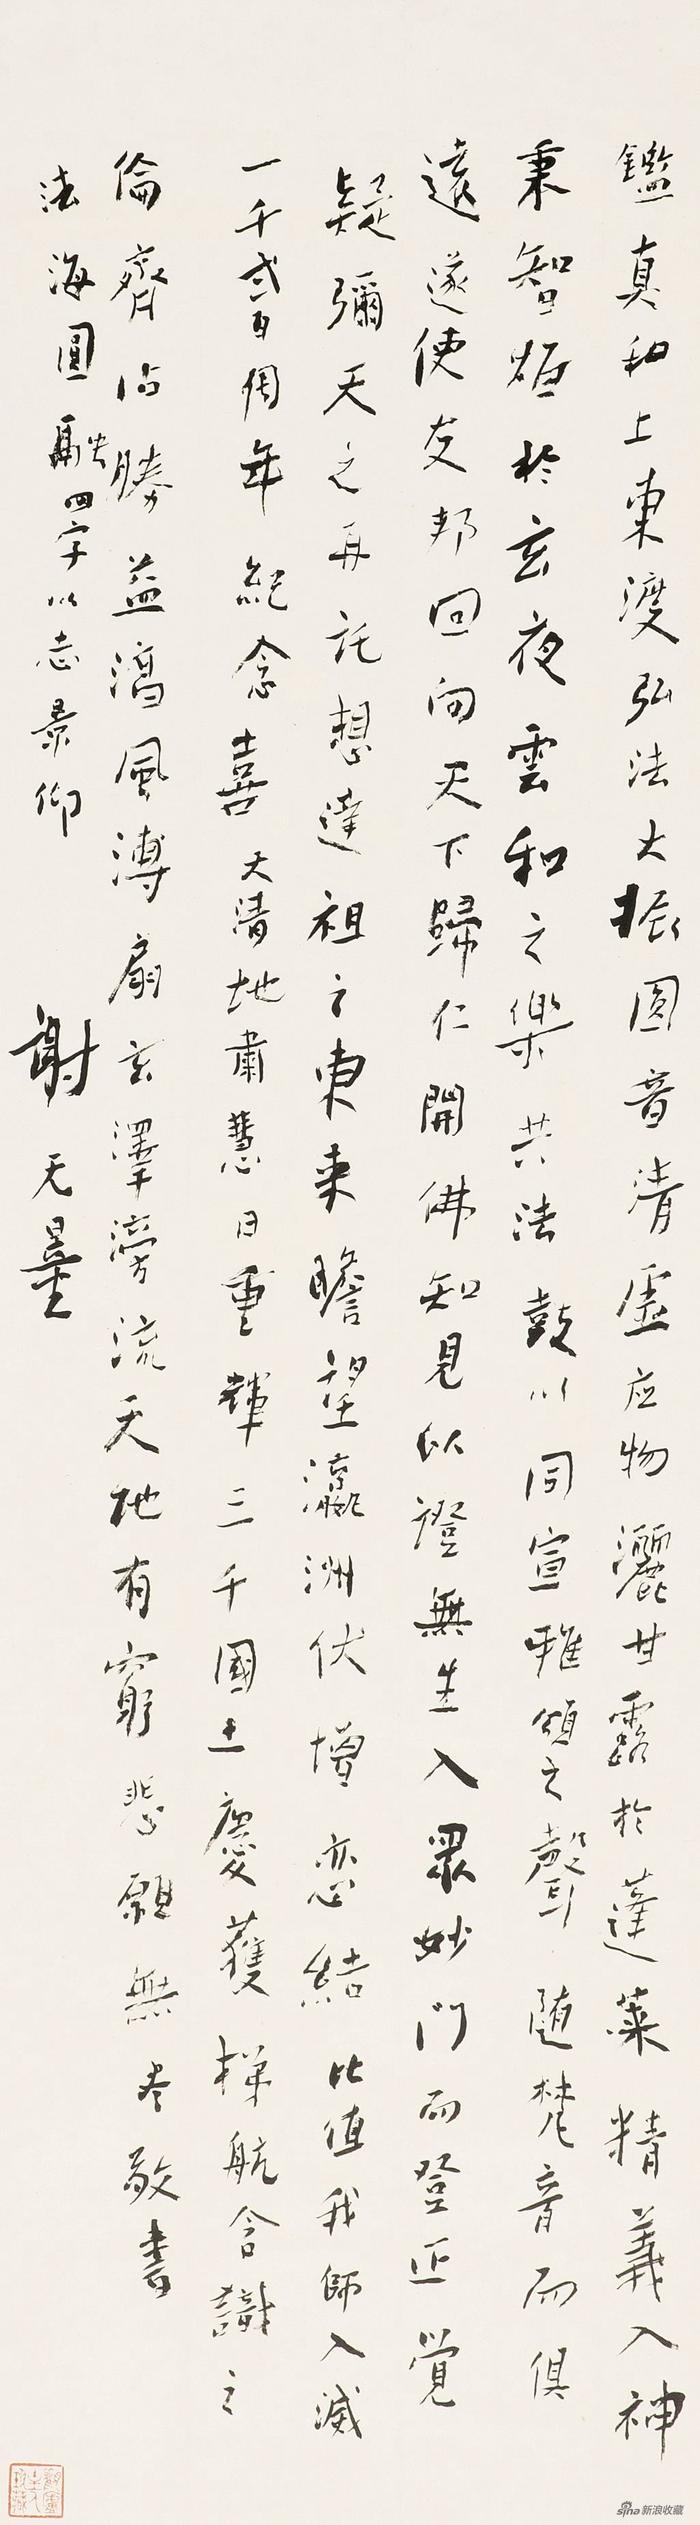 鑑真和上東渡弘法大振圓音清虛应物灑甘露於蓬萊精義入神
秉智炬於玄夜雲和之樂共法鼓以同宣雅頌之聲随梵音而俱
遠遂使友邦回向天下歸仁開佛知見以證無生入眾妙門而登正覺
疑彌天之再託想達祖之東来瞻望瀛洲伏增恋結比值我師入滅
一千弍百周年紀念喜天清地肅慧日重輝三千國土慶獲梯航含識之
倫齊沾勝益濤風溥扇玄澤滂流天地有窮悲願無尽敬書
法海圓融四字以志景仰
謝无量
sina新浪收藏